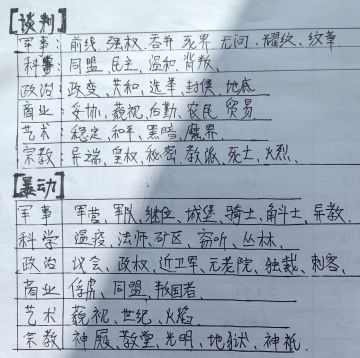 [谈判]
军事:前线、强权、吞并、死界、无间、耀纹、纹章
科学:同盟、民主、温和、背叛、
政治:政变、共和、选举、封侯、地底
商业:妥协、藐视、后勤、农民、贸易
艺术:稳定、和平、黑暗、魔界、
宗教:异端、皇权、秘密、教派、死士、火烈、
[暴动]
军事 军营、军队、继位、城堡、骑士、角斗士、异教、
科学 温疫、法师、矿区、窃听、丛林、
政治 议会、政权、近卫军、元老院、独裁、刺客、
商业 俘虏、同盟、叛国者、
艺术 藐视、世纪、火焰、
宗教 神殿、教堂、光明、地狱、神祇、